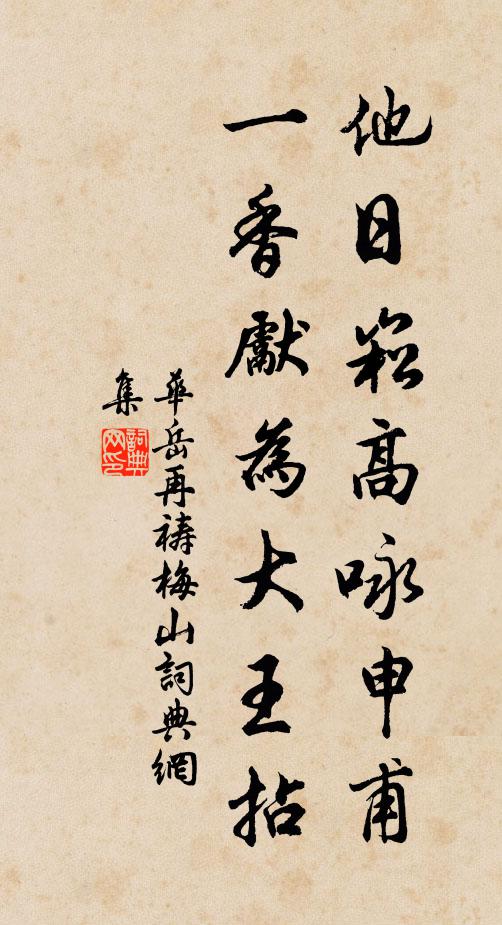 他日崧高咏申甫
一香獻為大王拈
華岳再禱梅山詞典網
集
詞典
网印